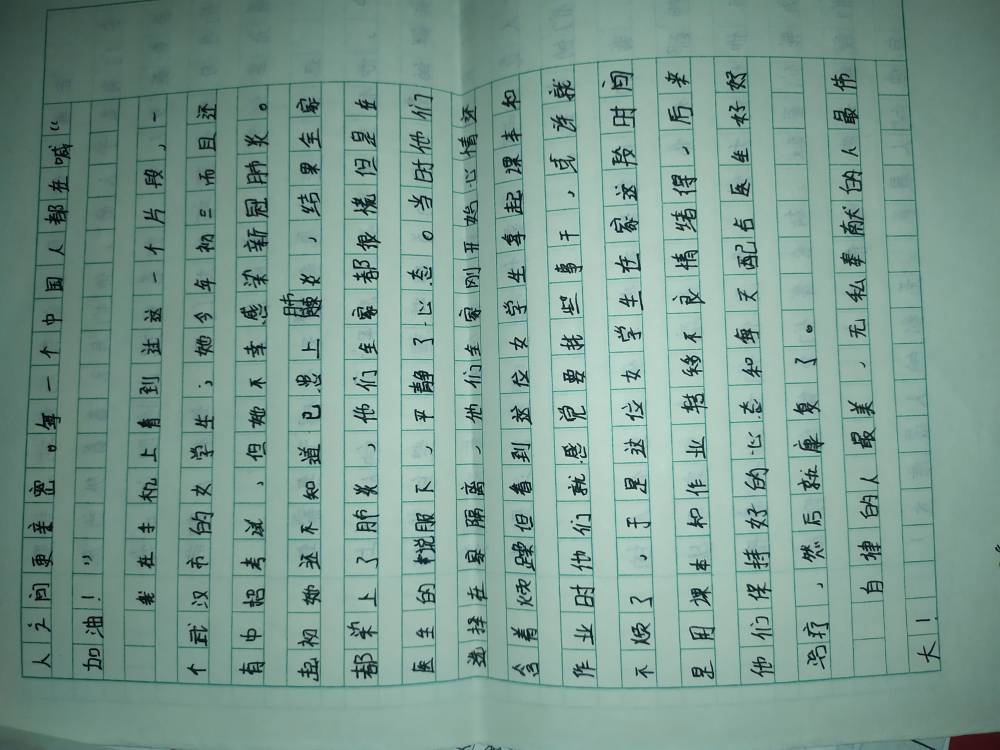 人之间更亲密。每一个中国人都在喊“
加油！”
我在手机上看到过这一个片段，一
个武汉市的女学生；她今年初三而且还
有中招考试，但她不幸感染新冠肺炎。
起初她还不知道已患上肺炎，结果全家
都染上了肺炎，他们全家都很慌但是在
医生的说服下，平静了心态。当时他们
选择在家隔离，他们全家刚开始心情还
含着烦躁但看到这位女学生拿起课本和
作业时他们就感觉要找些事干，或许就
不烦了，于是这位女学生在家这段时间
是用课本和作业转移不良情绪得，后来
他们保持好的心态和每天配合医生好好
治疗，然后就康复了。
自律的人最美，无私奉献的人最伟
大！